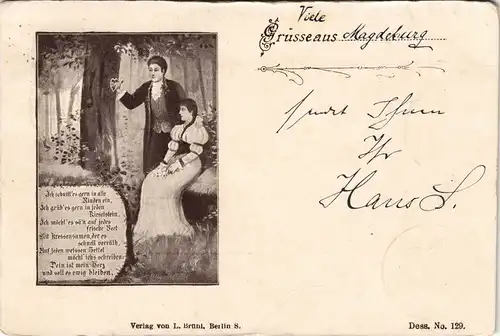 Viele
Grüsse aus Magdeburg
sendet Ihnen
Ihr
Hans L.
Ich schnitt' es gern in alle
Rinden ein,
Ich grüb' es gern in jeden
Kieselstein,
Ich möcht' es sä'n auf jedes
frische Beet
Mit Kressensamen, der es
schnell verräth,
Auf jeden weissen Zettel
möcht' ich's schreiben:
Dein ist mein Herz
und soll es ewig bleiben.
Verlag von L. Brühl, Berlin S.
Dess. No. 129.